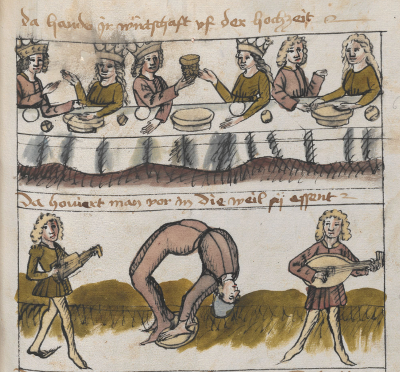 da haund ir wirtschaft vf der hochzeit
Da hoviert man vor in die weil sÿ essent